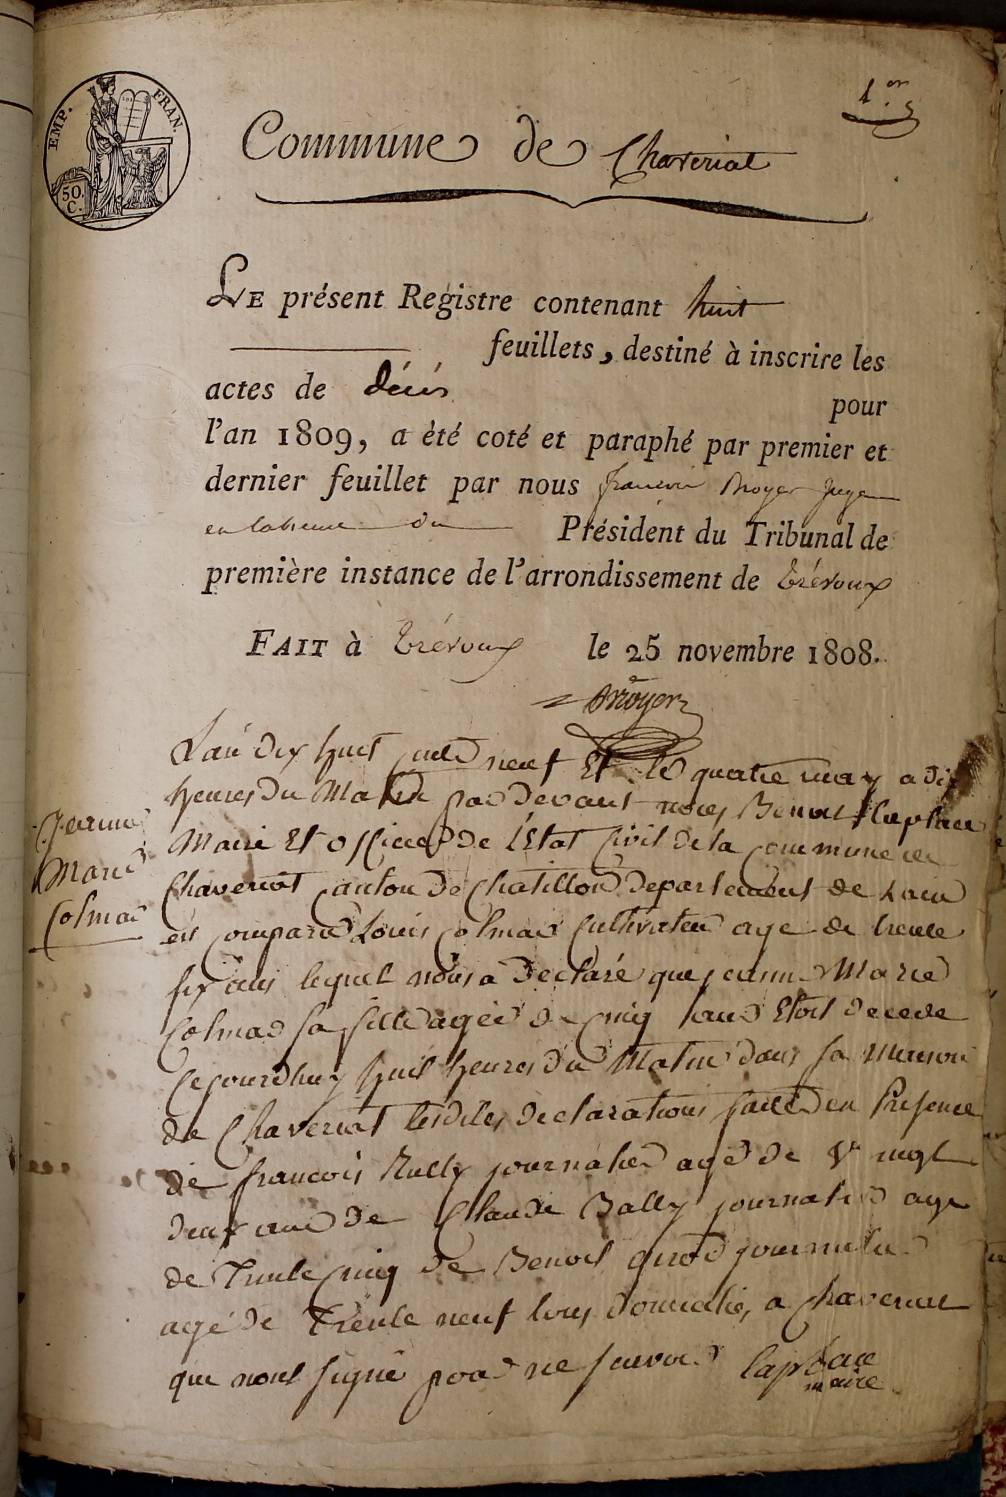 1.er
EMP. FRAN.
50.
C.
Commune de Chaveriat
LE présent Registre contenant huit
feuillets, destiné à inscrire les
actes de décès pour
l'an 1809, a été coté et paraphé par premier et
dernier feuillet par nous francois Moyer Juge
en labsence du Président du Tribunal de
première instance de l'arrondissement de trévoux
FAIT à trévoux le 25 novembre 1808.
Moyer
Jeanne
Marie
Colmar
Lan dix huit cent neuf Et le quatre may a dix
heures du Matin par devant nous Benoit Laplace
Maire Et officier de l'Etat Civil de la commune de
Chaveriat canton de Chatillon departement de Lain
est comparu Louis Colmar Cultivateur age de trente
six ans lequel nous a declaré que jeanne Marie
Colmar sa fille agée de cinq ans Etoit decede
cejourdhuy huit heures du Matin dans sa maison
de Chaveriat lesdites declarations faites en Presence
de francois Rully journalier agé de vingt
deux ans de Claude Bally journalier age
de Trente cinq de Benoit journalier
agé de Trente neuf tous domicilies a Chaveriat
que nont signé pour ne scavoir Laplace
maire